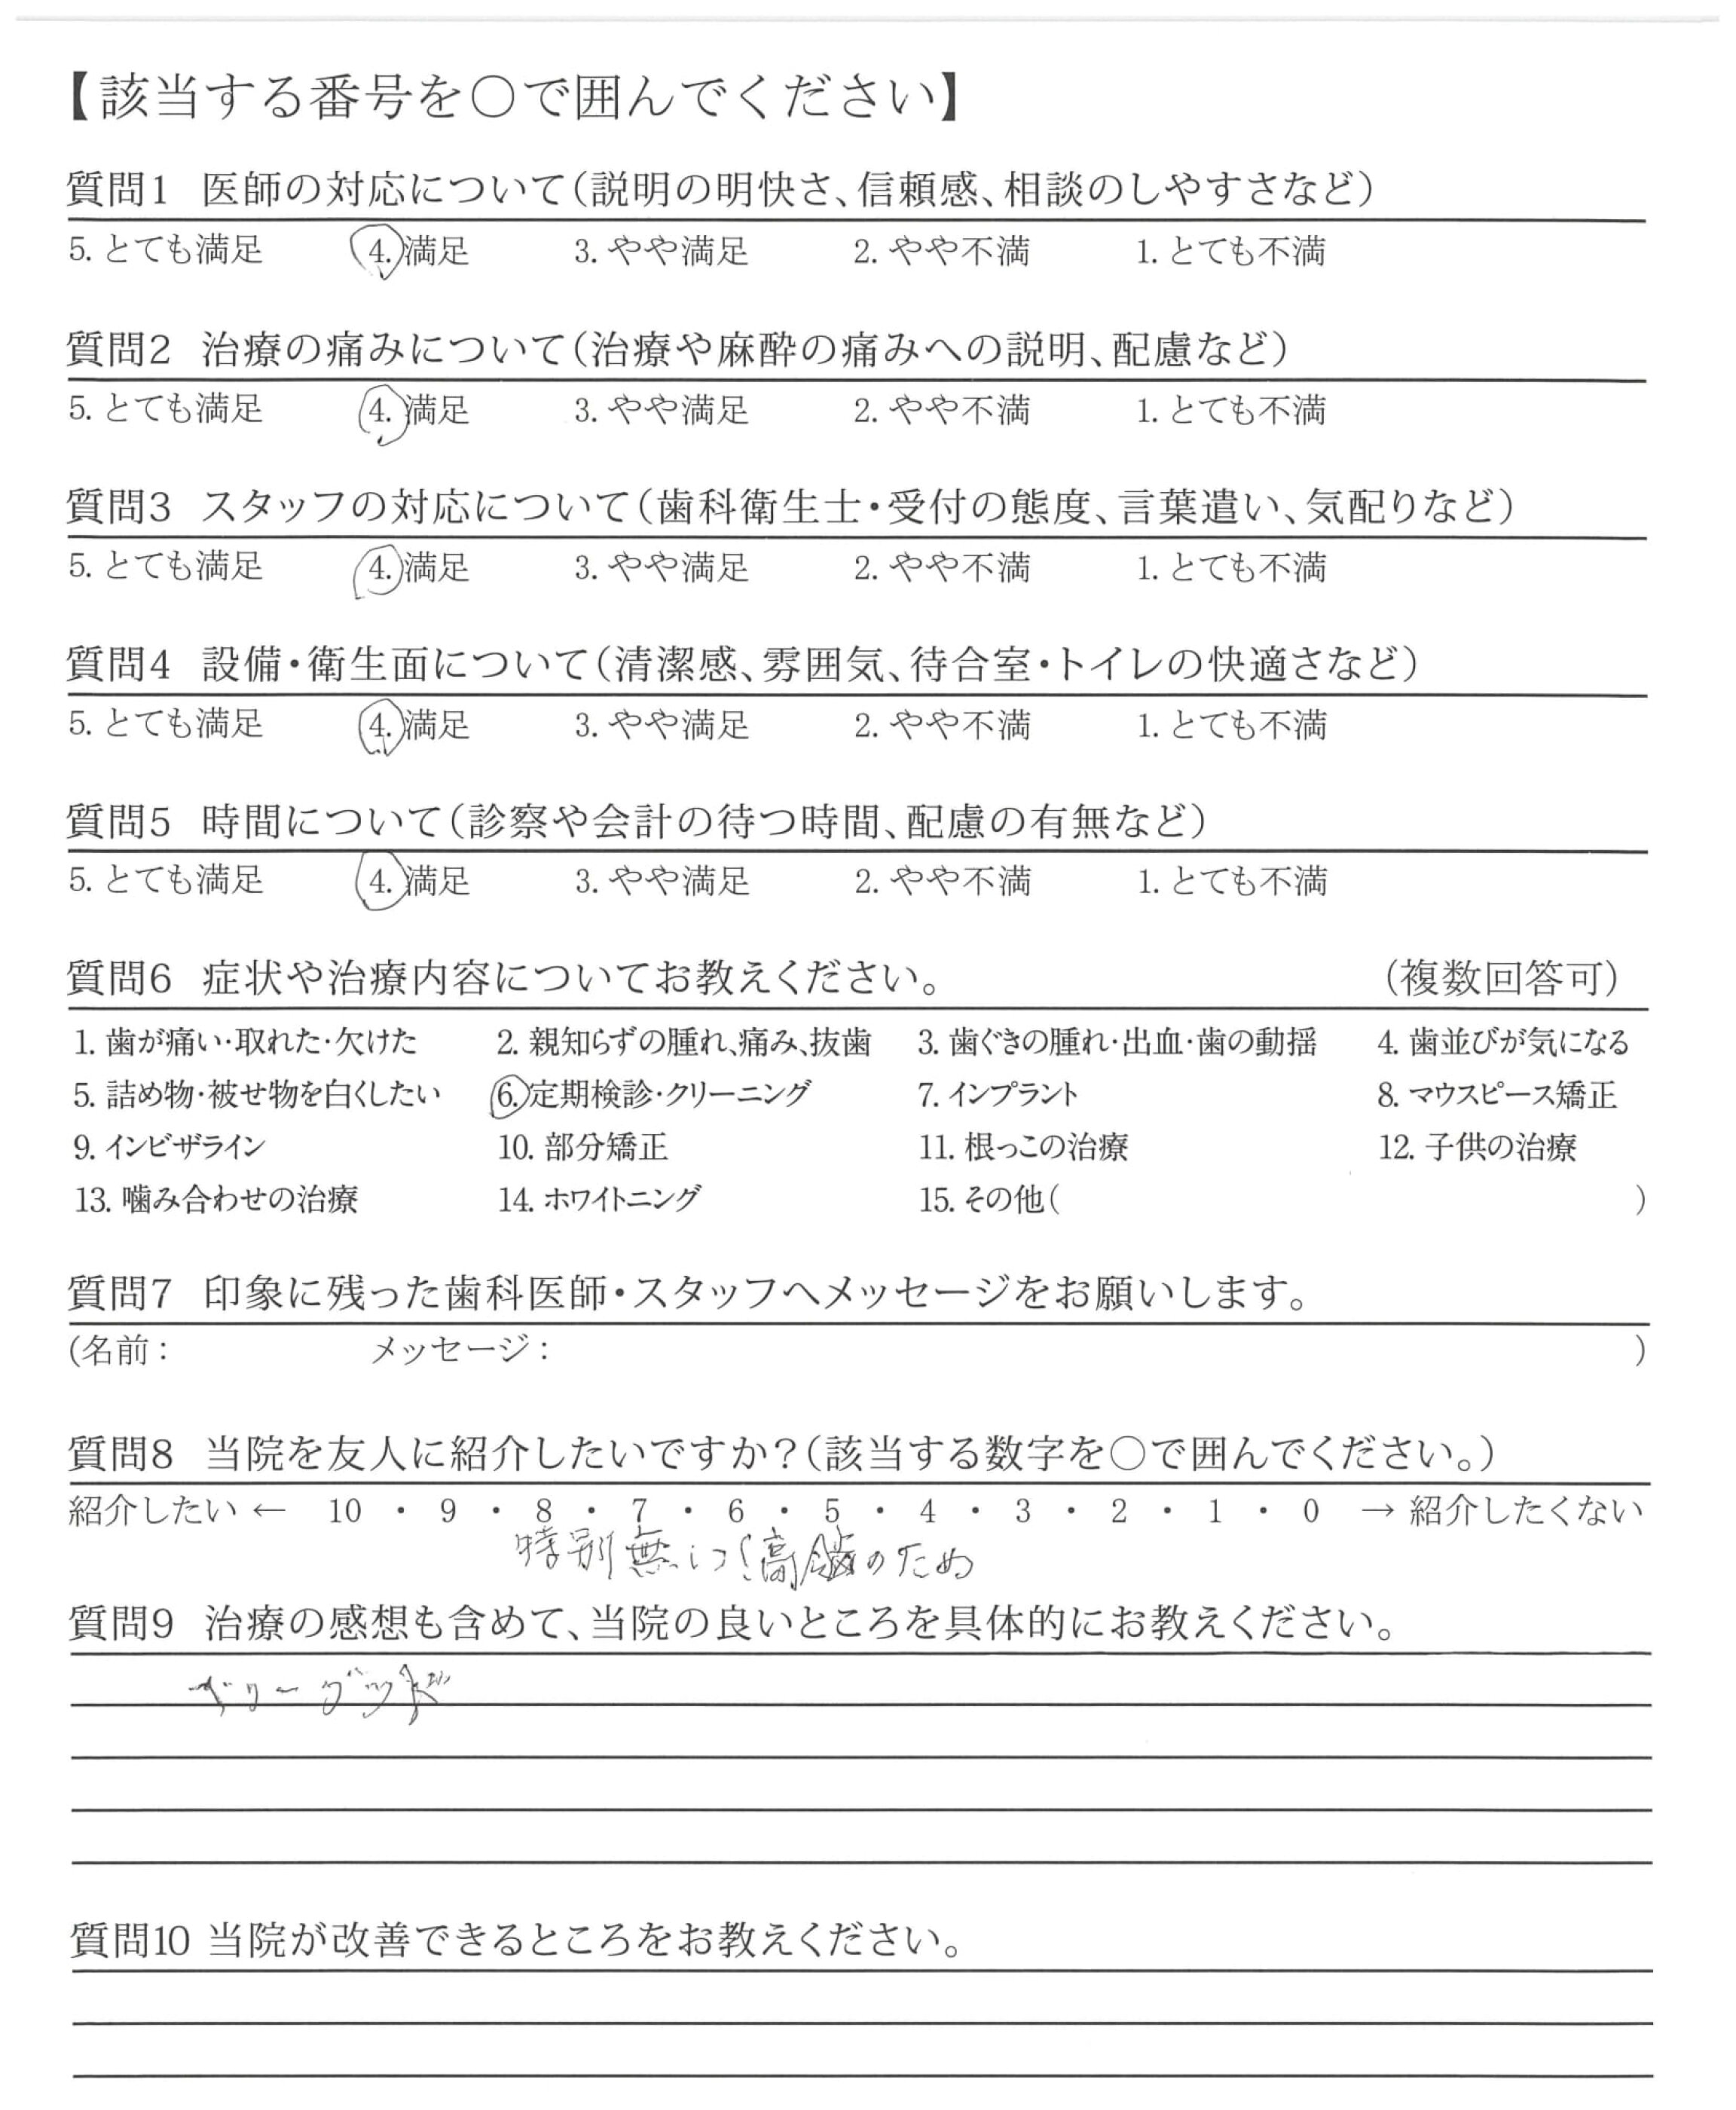 【該当する番号を○で囲んでください】
質問1 医師の対応について(説明の明快さ、信頼感、相談のしやすさなど)
5. とても満足 4. 満足 3. やや満足 2. やや不満 1. とても不満
質問2 治療の痛みについて(治療や麻酔の痛みへの説明、配慮など)
5. とても満足 4. 満足 3. やや満足 2. やや不満 1. とても不満
質問3 スタッフの対応について(歯科衛生士・受付の態度、言葉遣い、気配りなど)
5. とても満足 4. 満足 3. やや満足 2. やや不満 1. とても不満
質問4 設備・衛生面について(清潔感、雰囲気、待合室・トイレの快適さなど)
5. とても満足 4. 満足 3. やや満足 2. やや不満 1. とても不満
質問5 時間について(診察や会計の待つ時間、配慮の有無など)
5. とても満足 4. 満足 3. やや満足 2. やや不満 1. とても不満
質問6 症状や治療内容についてお教えください。 (複数回答可)
1. 歯が痛い・取れた・欠けた 2. 親知らずの腫れ、痛み、抜歯 3. 歯ぐきの腫れ・出血・歯の動揺 4. 歯並びが気になる
5. 詰め物・被せ物を白くしたい 6. 定期検診・クリーニング 7. インプラント 8. マウスピース矯正
9. インビザライン 10. 部分矯正 11. 根っこの治療 12. 子供の治療
13. 噛み合わせの治療 14. ホワイトニング 15. その他( )
質問7 印象に残った歯科医師・スタッフへメッセージをお願いします。
(名前: メッセージ: )
質問8 当院を友人に紹介したいですか?(該当する数字を○で囲んでください。)
紹介したい ← 10 ・ 9 ・ 8 ・ 7 ・ 6 ・ 5 ・ 4 ・ 3 ・ 2 ・ 1 ・ 0 → 紹介したくない
特別無し のため
質問9 治療の感想も含めて、当院の良いところを具体的にお教えください。
ベリーグッド
質問10 当院が改善できるところをお教えください。